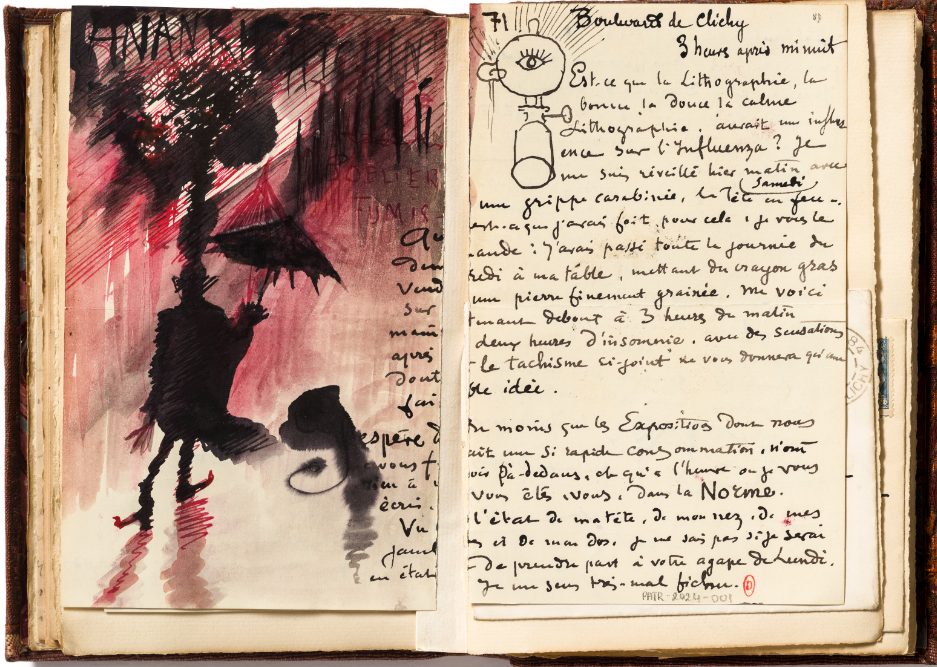 ANANKÈ
FUMIS
Qu
Ven
sur
matin
après
Dont
fai
espère d
vous f
rien à v
écris.
Vu
jamb
en état
71 Boulevard de Clichy
3 heures après minuit
Est-ce que la Lithographie, la
bonne la Douce la calme
Lithographie, aurait une influ
ence sur l'Influenza ? Je
me suis réveillé hier matin avec
Samedi
une grippe carabinée, la Tête en feu.
est-ce que j'avais fait pour cela, je vous le
ande : J'avais passé toute la journée de
redi à ma table, mettant du crayon gras
une pierre finement grainée. Me voici
tenant debout à 3 heures du matin
deux heures d'insomnie, avec des sensations
le tachisme ci-joint ne vous donnera qu'une
ble idée.
moins que les Expositions Dont nous
ait une si rapide consommation, n'ont
là-dedans, et qu'à l'heure où je vous
vous êtes, vous, Dans la Norme.
l'état de ma tête, de mon nez, de mes
et de mon dos, je ne sais pas si je serai
De prendre part à votre agape de Lundi.
Je me sens très-mal fichu.
PATR-2024-001